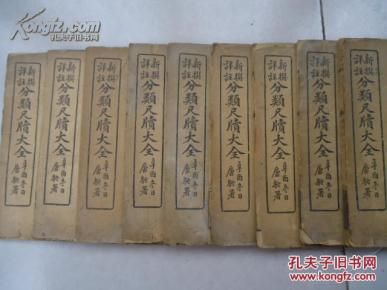 新撰
詳註
分類尺牘大全
辛酉冬日
唐駝署
新撰
詳註
分類尺牘大全
辛酉冬日
唐駝署
新撰
詳註
分類尺牘大全
辛酉冬日
唐駝署
新撰
詳註
分類尺牘大全
辛酉冬日
唐駝署
新撰
詳註
分類尺牘大全
辛酉冬日
唐駝署
新撰
詳註
分類尺牘大全
辛酉冬日
唐駝署
新撰
詳註
分類尺牘大全
辛酉冬日
唐駝署
新撰
詳註
分類尺牘大全
辛酉冬日
唐駝署
孔夫子旧书网